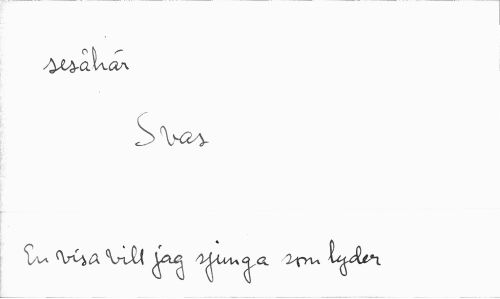 sesåhär
Svas
En visa vill jag sjunga som lyder